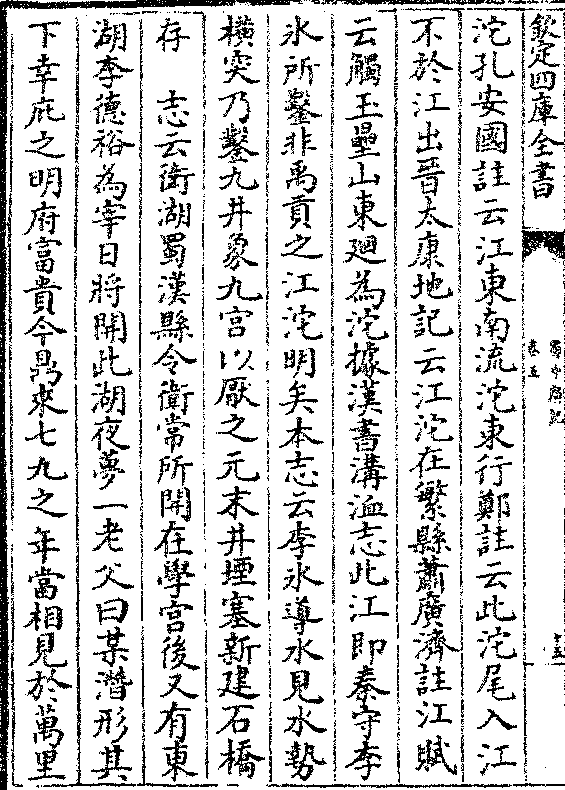 欽定四庫全書
蜀中廣記
卷五
沱孔安國註云江東南流沱東行鄭註云此沱尾入江
不於江出晉太康地記云江沱在繁縣蕭廣濟註江賦
云觸玉壘山東廻為沱據漢書溝洫志此江即秦守李
氷所鑿非禹貢之江沱明矣本志云李氷導水見水勢
橫突乃鑿九井象九宫以厭之元末井堙塞新建石橋
存　志云衛湖蜀漢縣令衛常所開在學宫後又有東
湖李德裕為宰日將開此湖夜夢一老父曰某潛形其
下幸庇之明府富貴今鼎來七九之年當相見於萬里